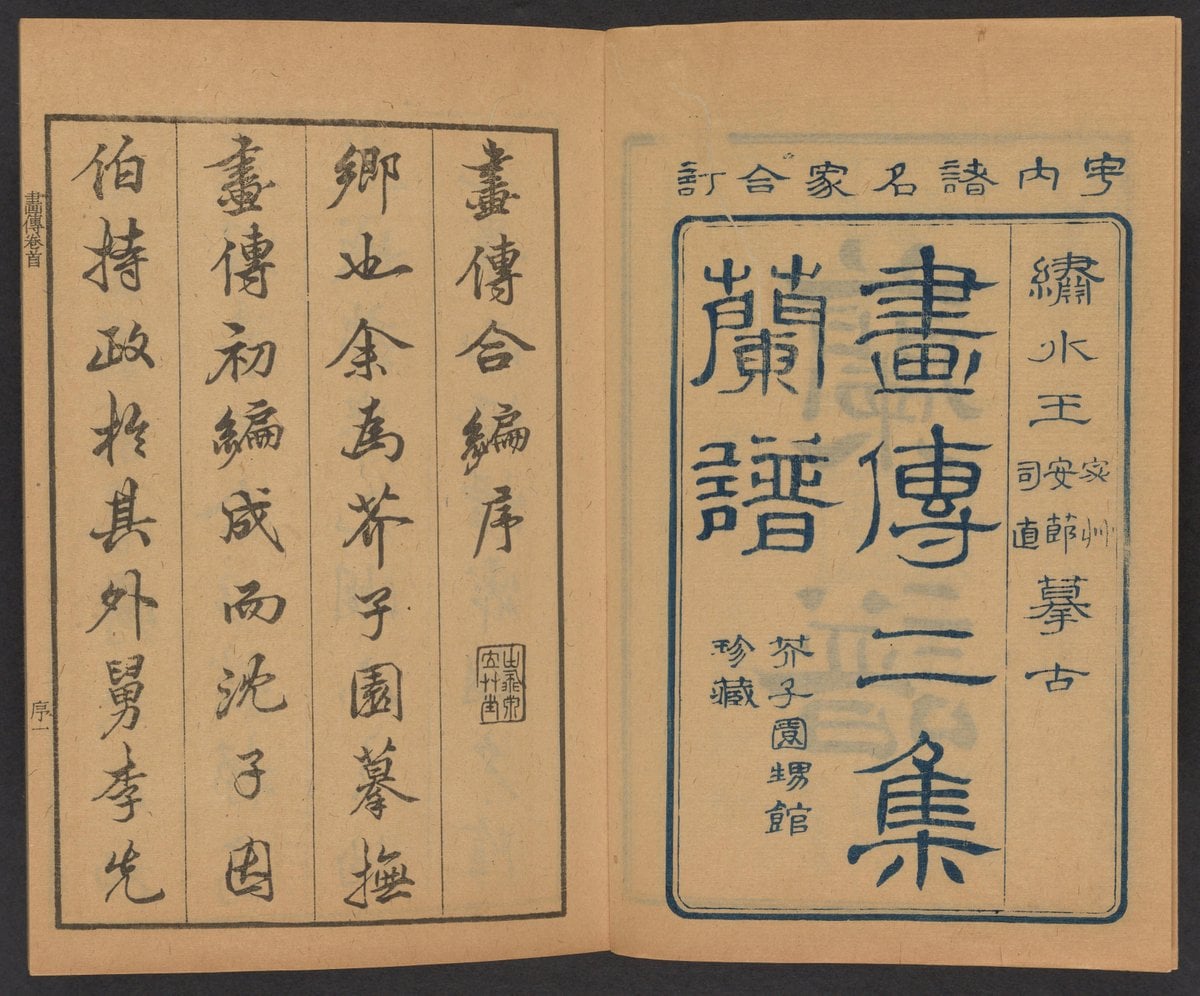 宇內諸名家合訂
繡水王宓艸安節司直摹古
畫傳二集
蘭譜
芥子園甥館
珍藏
畫傳合編序
鄉也余為芥子園摹撫
畫傳初編成而沈子因
伯持政於其外舅李先
畫傳卷首
序一